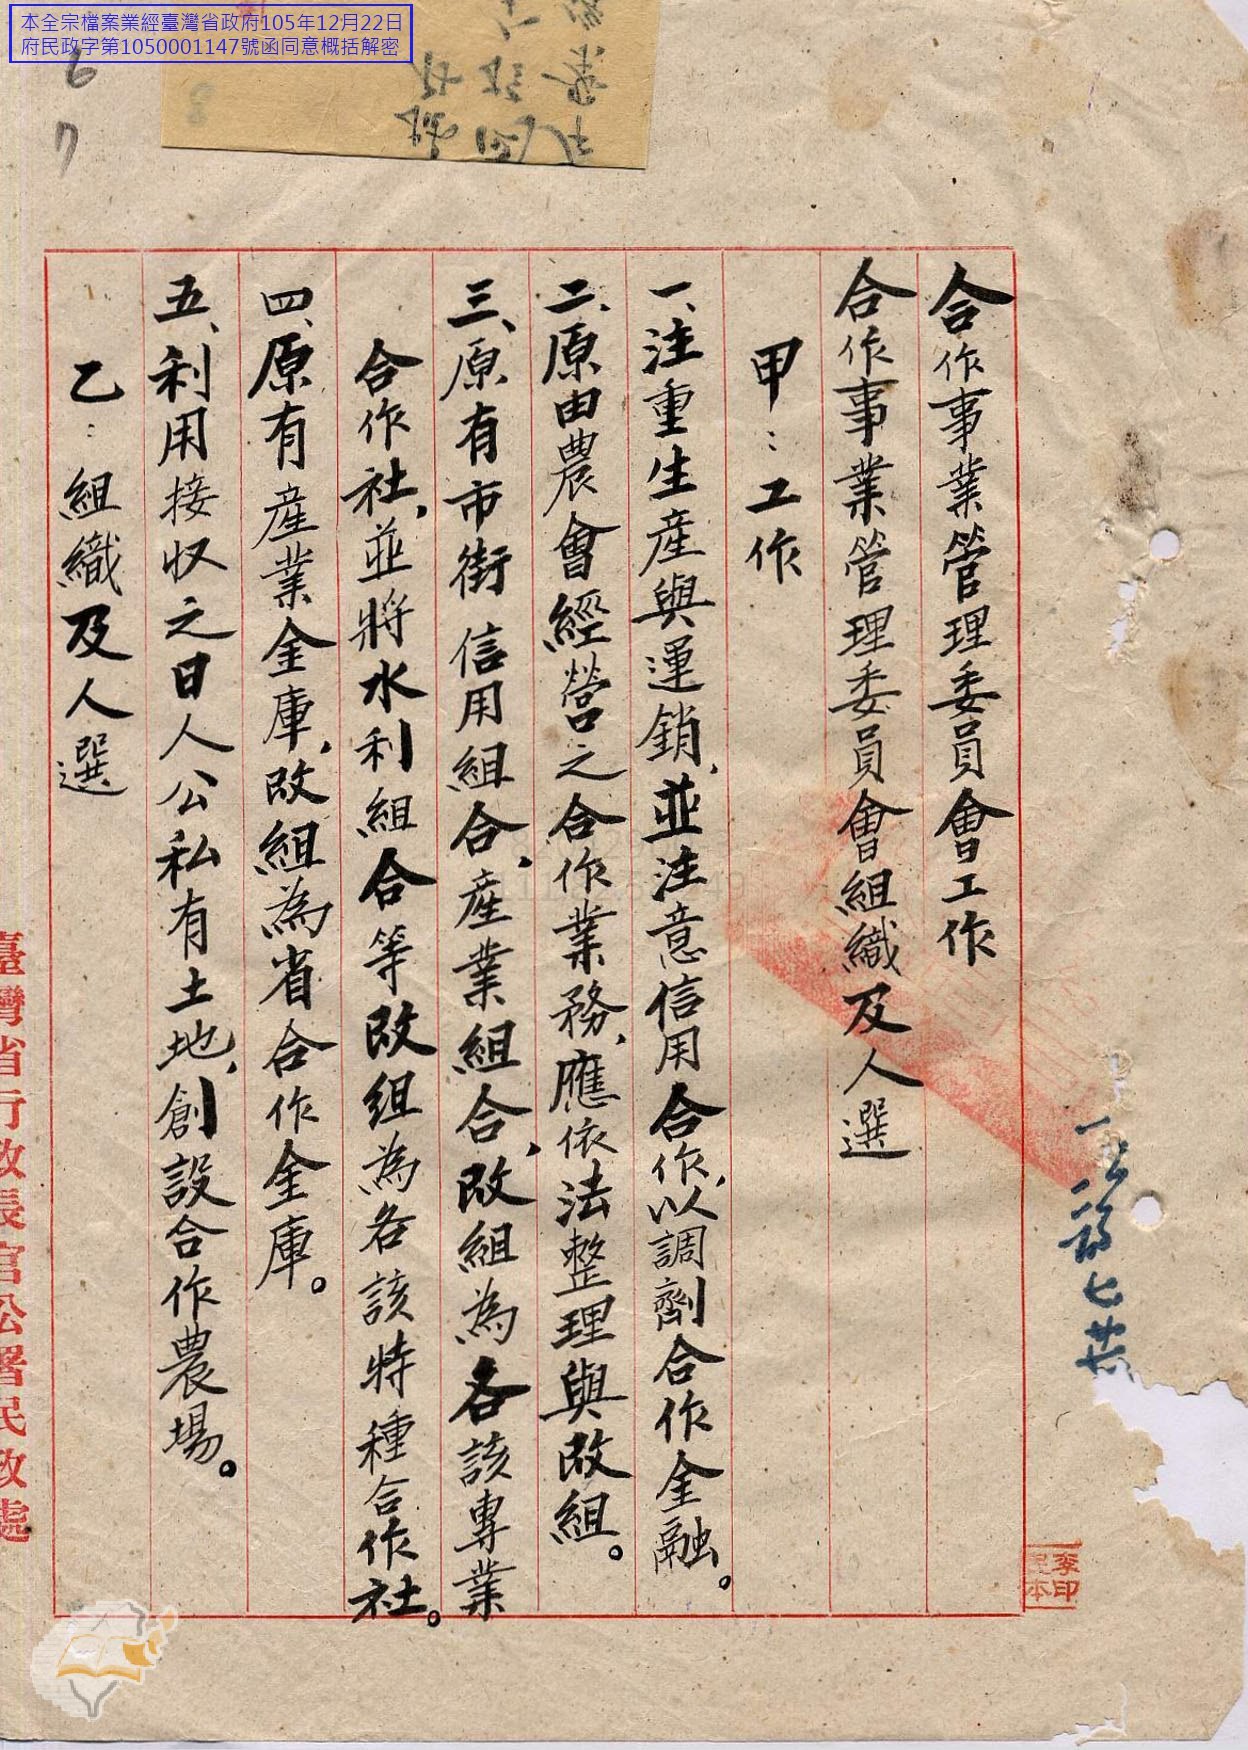 本全宗檔案業經臺灣省政府105年12月22日
府民政字第1050001147號函同意概括解密
67
合作事業管理委員會工作
合作事業管理委員會組織及人選
甲：工作
一、注重生產與運銷，並注意信用合作，以調劑合作金融。
二、原由農會經營之合作業務，應依法整理與改組。
三、原有市街信用組合，產業組合，改組為各該專業
合作社，並將水利組合等改組為各該特種合作社。
四、原有產業金庫，改組為省合作金庫。
五、利用接收之日人公私有土地，創設合作農場。
乙：組織及人選
臺灣省行政長官公署民政處